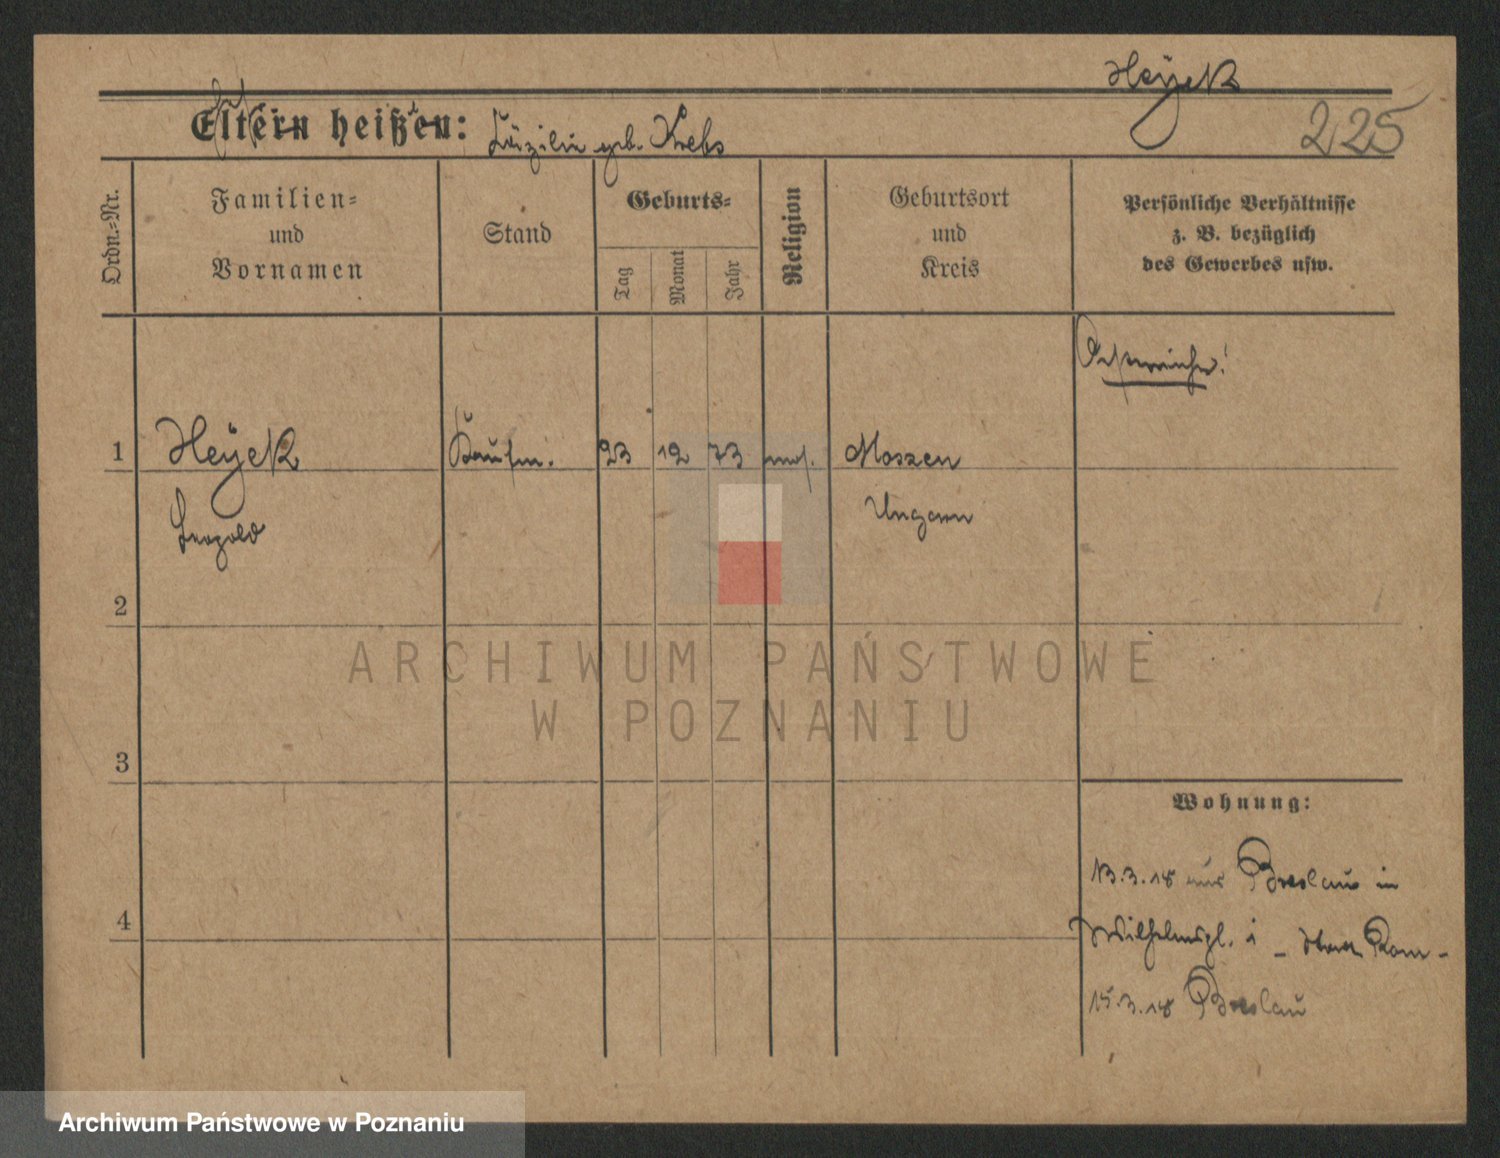 Heÿek
225
Eltern heißen: Käzilie geb. Krebs
Ordn.-Nr.
Familien-
und
Vornamen
Stand
Geburts-
Tag
Monat
Jahr
Religion
Geburtsort
und
Kreis
Persönliche Verhältnisse
z. B. bezüglich
des Gewerbes usw.
Österreicher!
1 Heÿek Kaufm. 23 12 73 mos. Moszen
Leopold Ungarn
2
ARCHIWUM PAŃSTWOWE
W POZNANIU
3
Wohnung:
13.3.18 aus Breslau in
4
Wilhelmspl. 1 -
15.3.18 Breslau
Archiwum Państwowe w Poznaniu